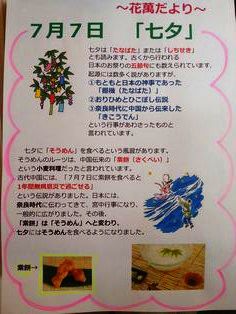 ～花萬だより～
7月7日 「七夕」
七夕は「たなばた」または「しちせき」
とも読みます。古くから行われる
日本のお祭りの五節句にも数えられています。
起源には数多く説がありますが、
①もともと日本の神事であった
「棚機（たなばた）」
②おりひめとひこぼし伝説
③奈良時代に中国から伝来した
「きこうでん」
という行事があわさったものと
言われています。
七夕に「そうめん」を食べるという風習があります。
そうめんのルーツは、中国伝来の「索餅（さくべい）」
という小麦料理だったと言われています。
古代中国には、「7月7日に索餅を食べると
1年間無病息災で過ごせる」
という伝説がありました。日本には、
奈良時代に伝わってきて、宮中行事になり、
一般的に広がりました。その後、
「索餅」は「そうめん」へと変わり、
七夕にはそうめんを食べるようになりました。
索餅→